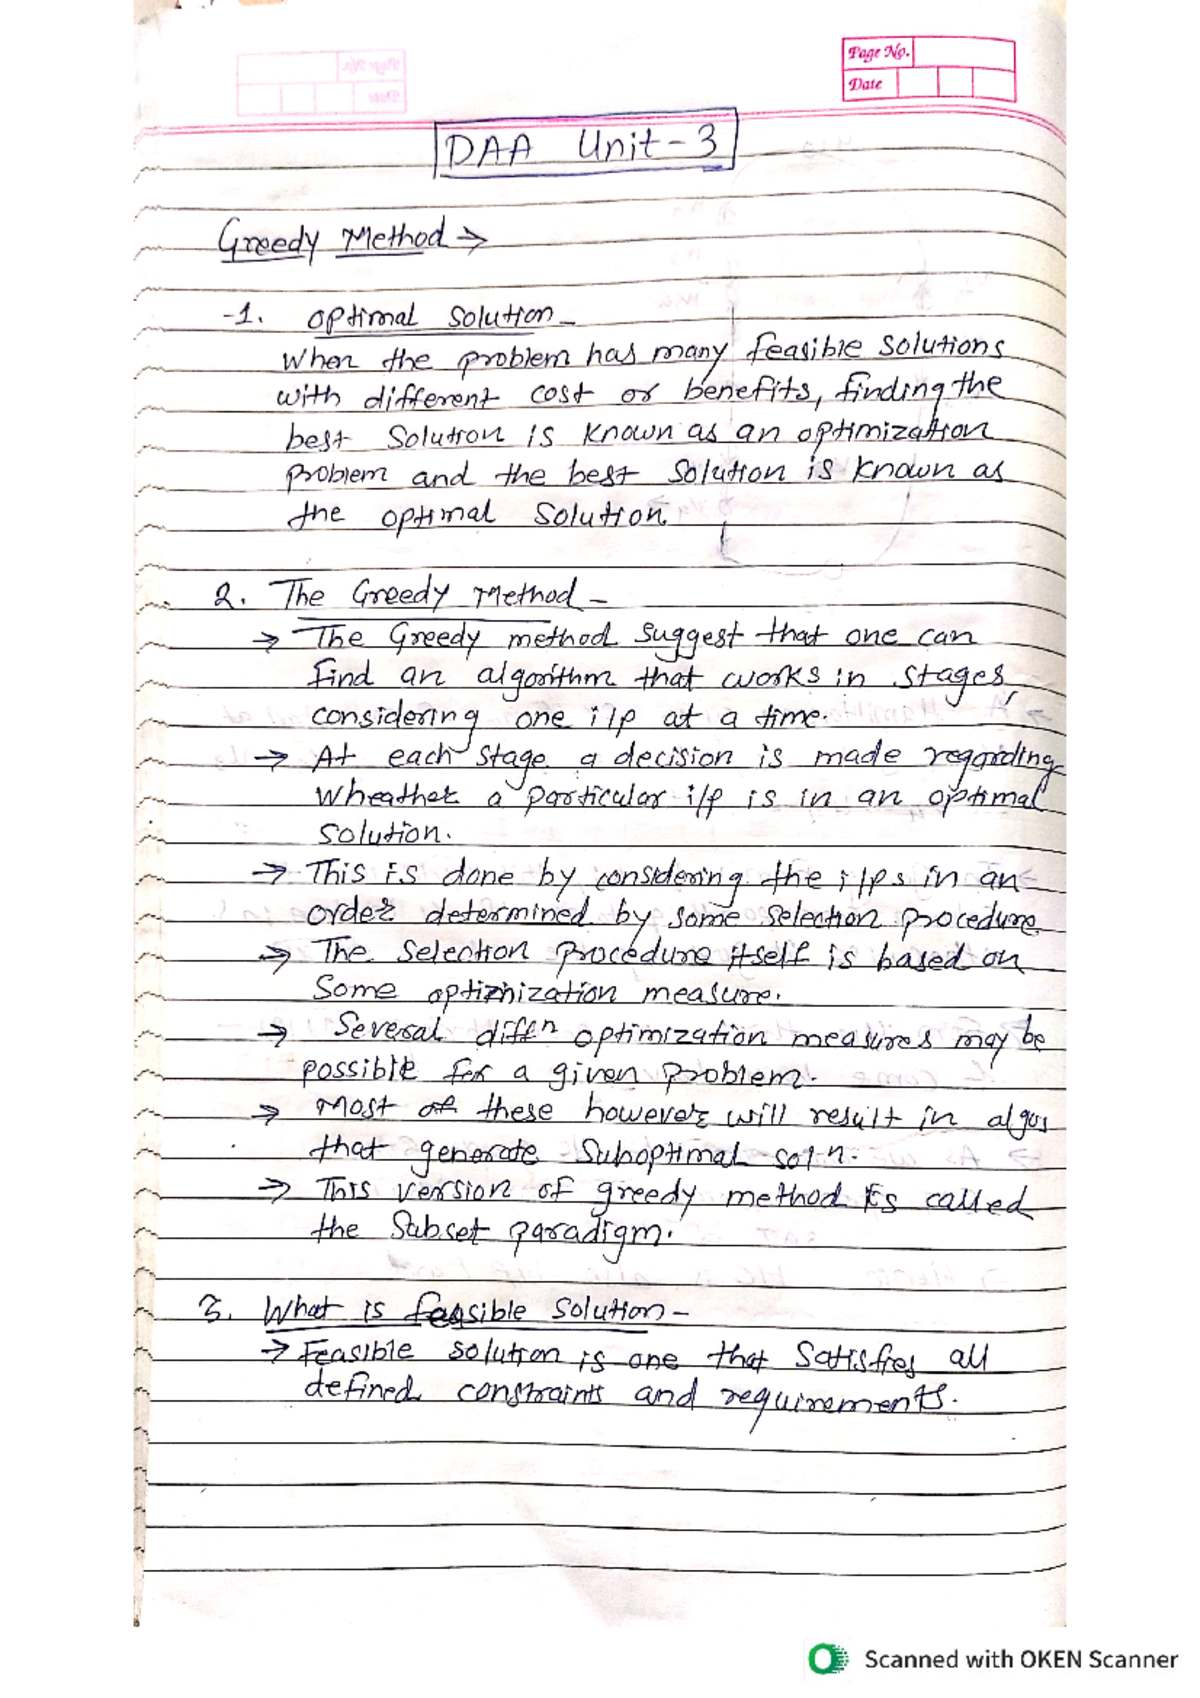 Page No.
Date
DAA Unit-3
Greedy Method →
-1. optimal solution -
When the problem has many feasible solutions
with different cost or benefits, finding the
best solution is known as an optimization
problem and the best solution is known as
the optimal solution.
2. The Greedy Method -
→ The Greedy method suggest that one can
find an algorithm that works in stages,
considering one i/p at a time.
→ At each stage a decision is made regarding
wheather a particular i/p is in an optimal
solution.
→ This is done by considering the i/ps in an
order determined by some selection procedure
→ The selection procedure itself is based on
some optimization measure.
→ Several diffn optimization measures may be
possible for a given problem.
→ Most of these however will result in algos
that generate suboptimal soln.
→ This version of greedy method is called
the subset paradigm.
3. What is feasible solution -
→ Feasible solution is one that satisfies all
defined constraints and requirements.
Scanned with OKEN Scanner